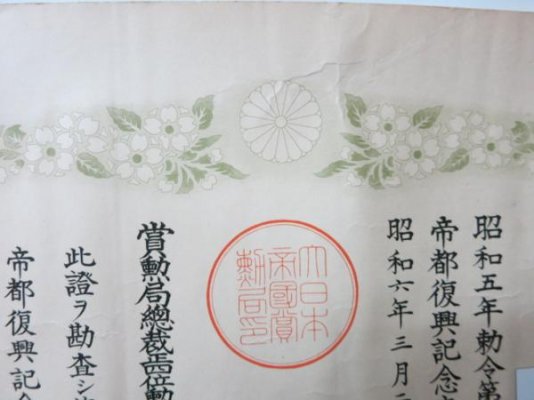 昭和五年勅令第
帝都復興記念
昭和六年三月
大日本
帝國賞
勳局印
賞勳局總裁正四位勳
此證ヲ勘査シ
帝都復興記念